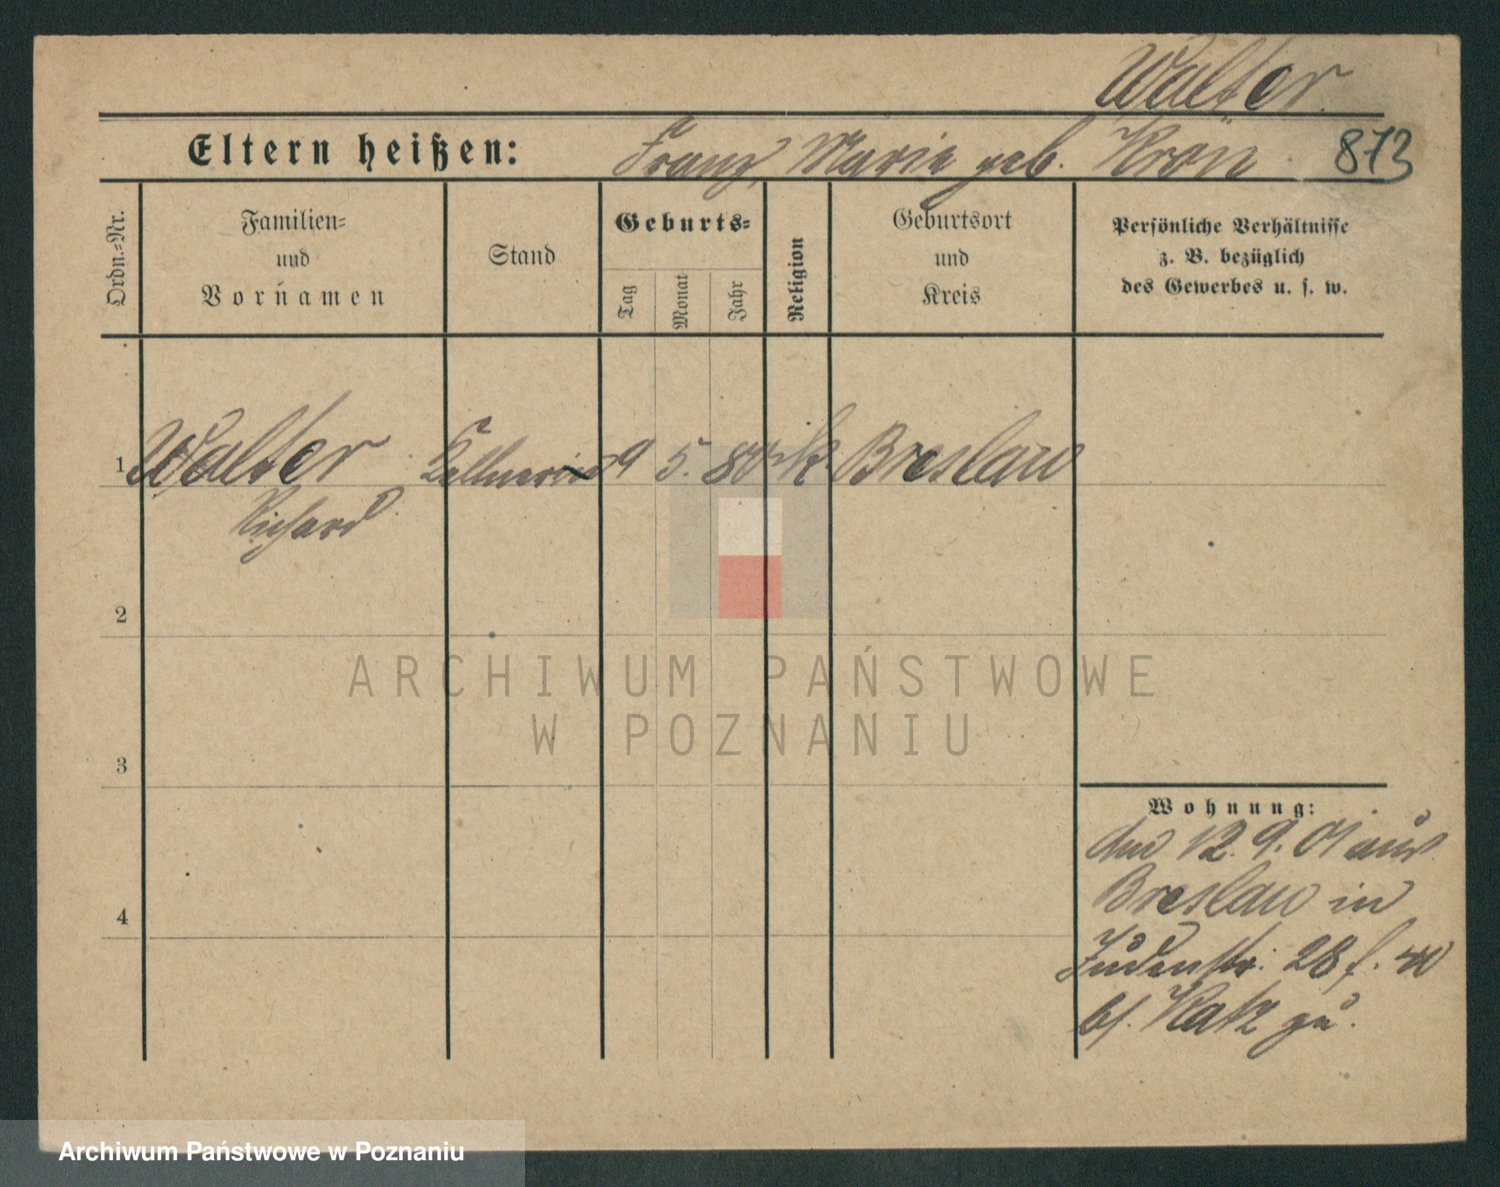 Walter
Eltern heißen: Franz, Marie geb. Krön 873
Ordn.-Nr.
Familien-
und
Vornamen
Stand
Geburts-
Tag
Monat
Jahr
Religion
Geburtsort
und
Kreis
Persönliche Verhältnisse
z. B. bezüglich
des Gewerbes u. s. w.
1 Walter 9 5. 80 k. Breslau
Richard
2
ARCHIWUM PAŃSTWOWE
W POZNANIU
3
4
Wohnung:
den 12. 9. 01 aus
Breslau in
Judenstr. 28
bf. Katz zu.
Archiwum Państwowe w Poznaniu